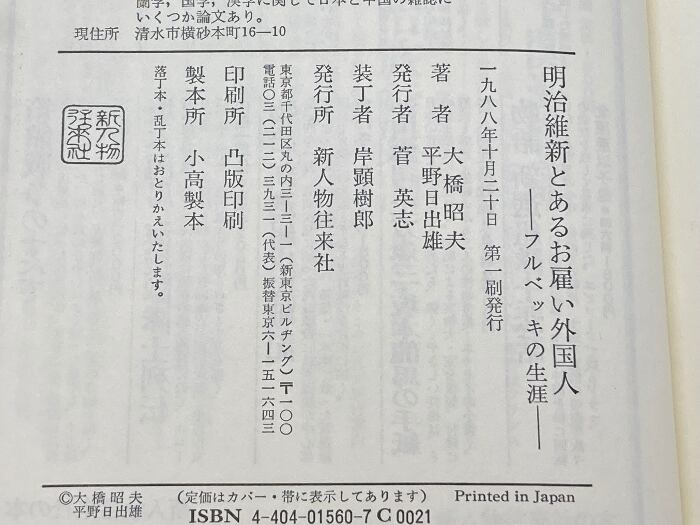 蘭学，国学，漢学に関して日本と中国の雑誌に
いくつか論文あり。
現住所 清水市横砂本町16―10
明治維新とあるお雇い外国人
――フルベッキの生涯――
一九八八年十月二十日 第一刷発行
著者 大橋昭夫
平野日出雄
発行者 菅英志
装丁者 岸顕樹郎
発行所 新人物往来社
東京都千代田区丸の内三―三―一（新東京ビルヂング）〒一〇〇
電話〇三（二一二）三九三一（代表）振替東京六―一五一六四三
印刷所 凸版印刷
製本所 小高製本
落丁本・乱丁本はおとりかえいたします。
新人物
往来社
©大橋昭夫
平野日出雄
（定価はカバー・帯に表示してあります） Printed in Japan
ISBN 4-404-01560-7 C0021